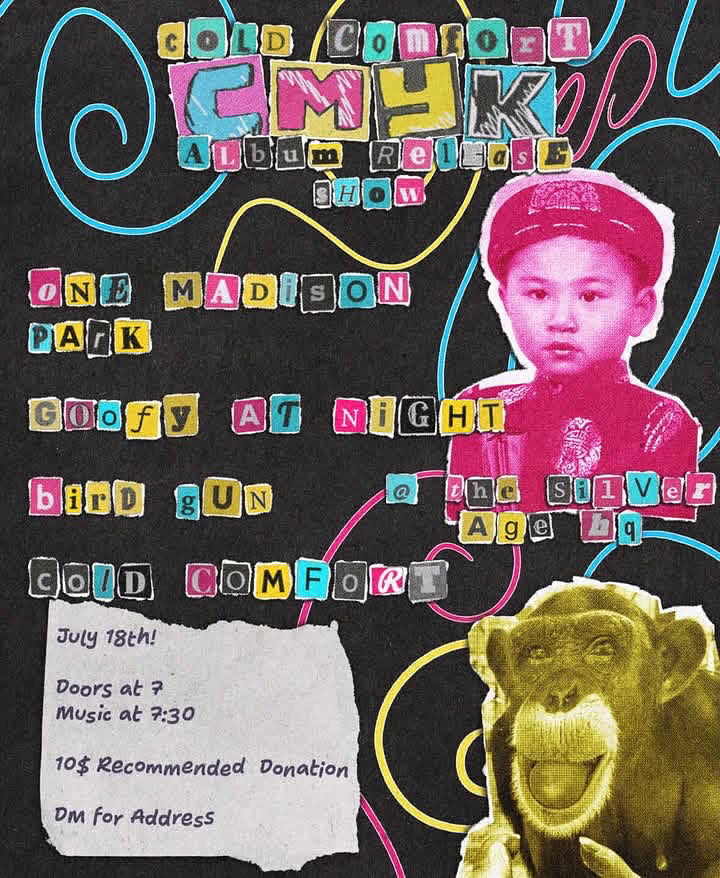 COLD ComforT
CMYK
Album ReleasE
sHow
oNE MADisON
PArK
GOofy AT NiGHT
birD gUN
@ the SilVer
Age hq
coLD COMFoRT
July 18th!
Doors at 7
Music at 7:30
10$ Recommended Donation
DM for Address